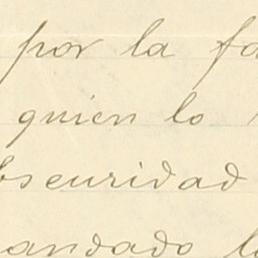 por la fa
quien lo
bscuridad
andado l